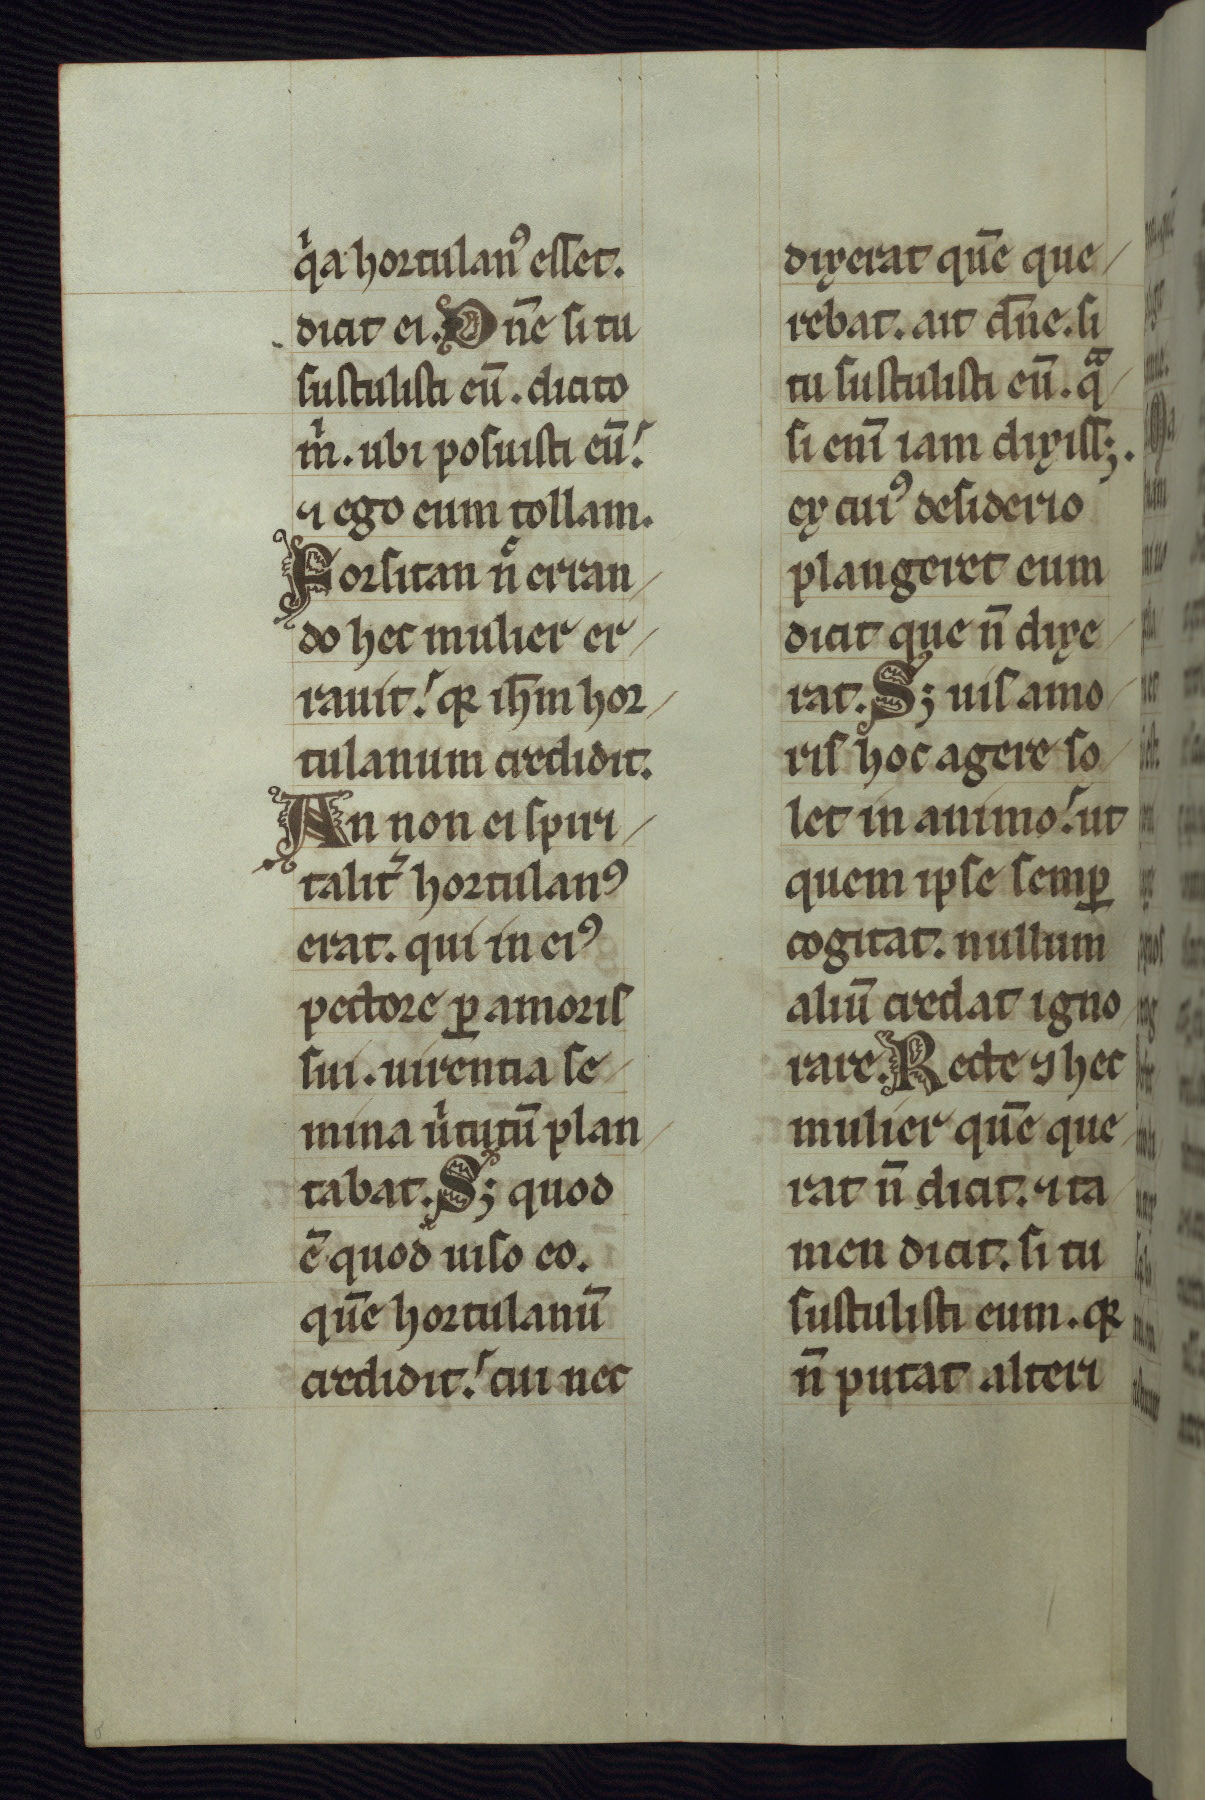 qͥa hortulanꝰ esset.
dicit ei. Dn̄e si tu
sustulisti eū. dicito
mͥ. ubi posuisti eū?
⁊ ego eum tollam.
Forsitan n̄ͨ erran
do hec mulier er
rauit? qꝛ ih̄m hor
tulanum credidit.
An non ei spiri
talit̛ hortulanꝰ
erat. qui in eiꝰ
pectore ꝑ amoris
sui. uirentia se
mina uͥtutū plan
tabat. S; quod
ē quod uiso eo.
quē hortulanū
credidit? cui nec
dixerat quē que
rebat. ait dn̄e. si
tu sustulisti eū. qͣ
si enī iam dixiss;.
ex cuiꝰ desiderio
plangeret eum
dicit que n̄ dixe
rat. S; uis amo
ris hoc agere so
let in animo? ut
quem ipse semꝑ
cogitat. nullum
aliū credat igno
rare. Recte ⁊ hec
mulier quē que
rat n̄ dicit. ⁊ ta
men dicit. si tu
sustulisti eum. qꝛ
n̄ putat alteri